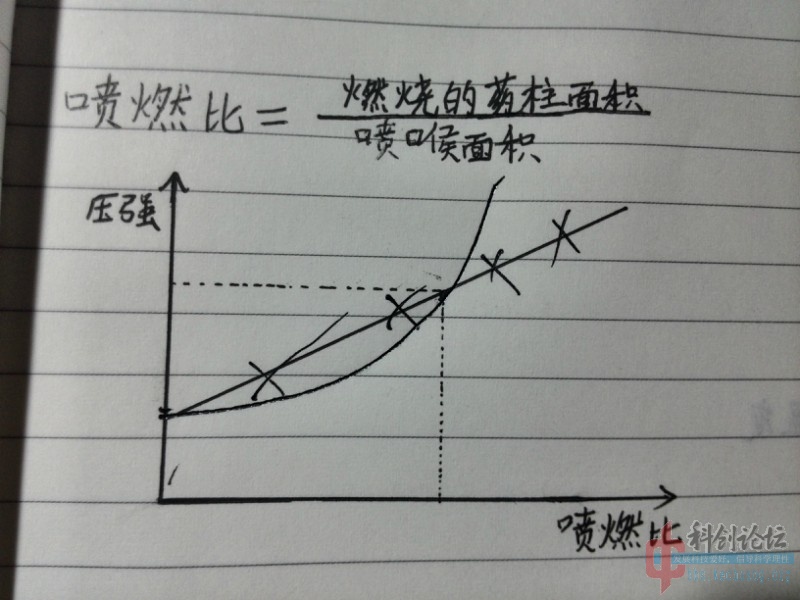 喷燃比=燃烧的药柱面积
喷喉面积
压强
喷燃比
科创论坛